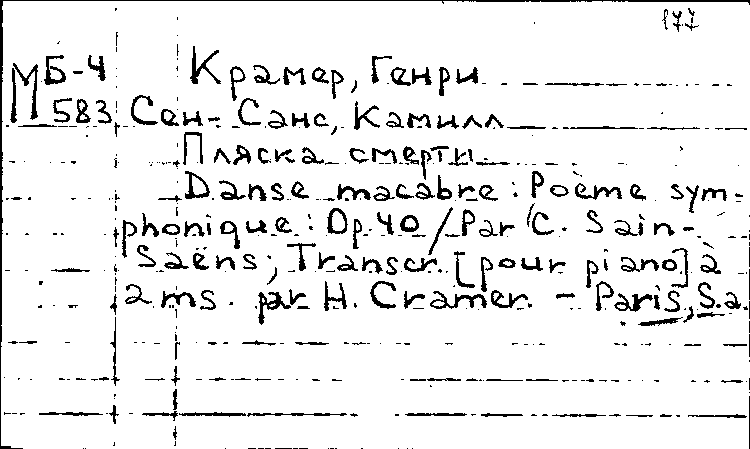 177
М Б-4 Крамер, Генри
583 Сен-Санс, Камилл
Пляска смерти.
Danse macabre: Poème sym-
phonique: Op. 40 / Par C. Sain-
Saëns; Transcr. [pour piano] à
2 ms. par H. Cramer. - Paris, S.a.